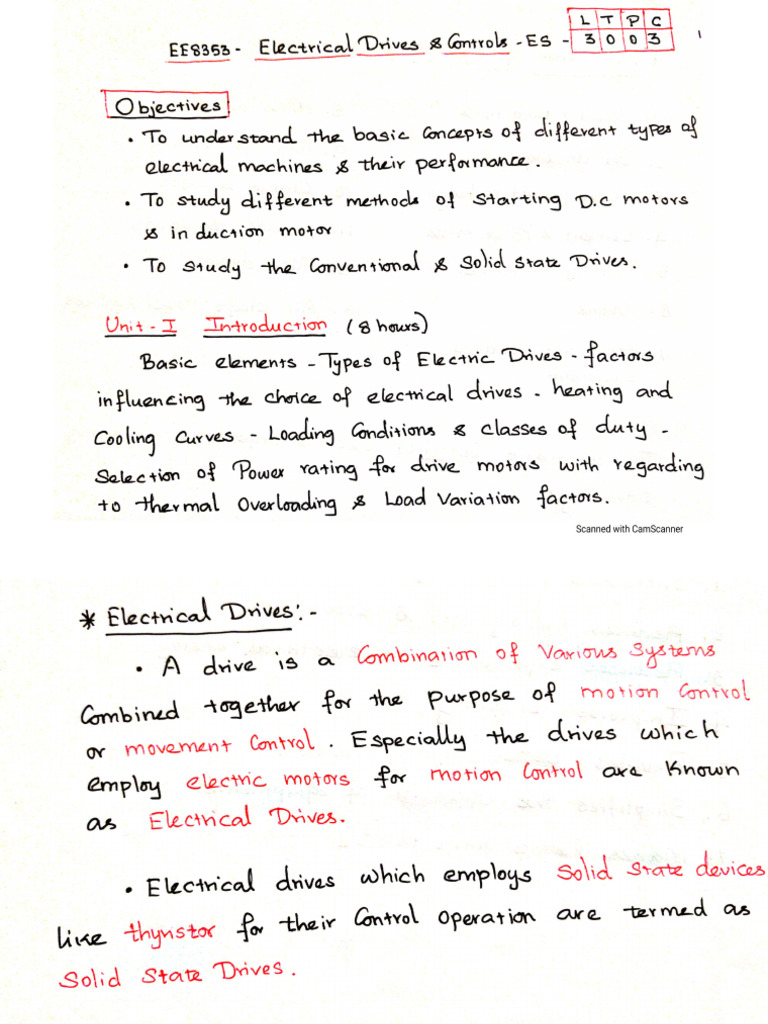 EE8353 - Electrical Drives & Controls - ES -
L T P C
3 0 0 3
1
Objectives
• To understand the basic concepts of different types of
electrical machines & their performance.
• To study different methods of starting D.C motors
& in duction motor
• To study the Conventional & Solid State Drives.
Unit - I Introduction (8 hours)
Basic elements - Types of Electric Drives - factors
influencing the choice of electrical drives - heating and
Cooling Curves - Loading Conditions & classes of duty -
Selection of Power rating for drive motors with regarding
to thermal Overloading & Load Variation factors.
Scanned with CamScanner
* Electrical Drives:-
• A drive is a Combination of Various Systems
Combined together for the purpose of motion Control
or movement Control. Especially the drives which
employ electric motors for motion Control are Known
as Electrical Drives.
• Electrical drives which employs Solid State devices
like thynstor for their Control Operation are termed as
Solid State Drives.